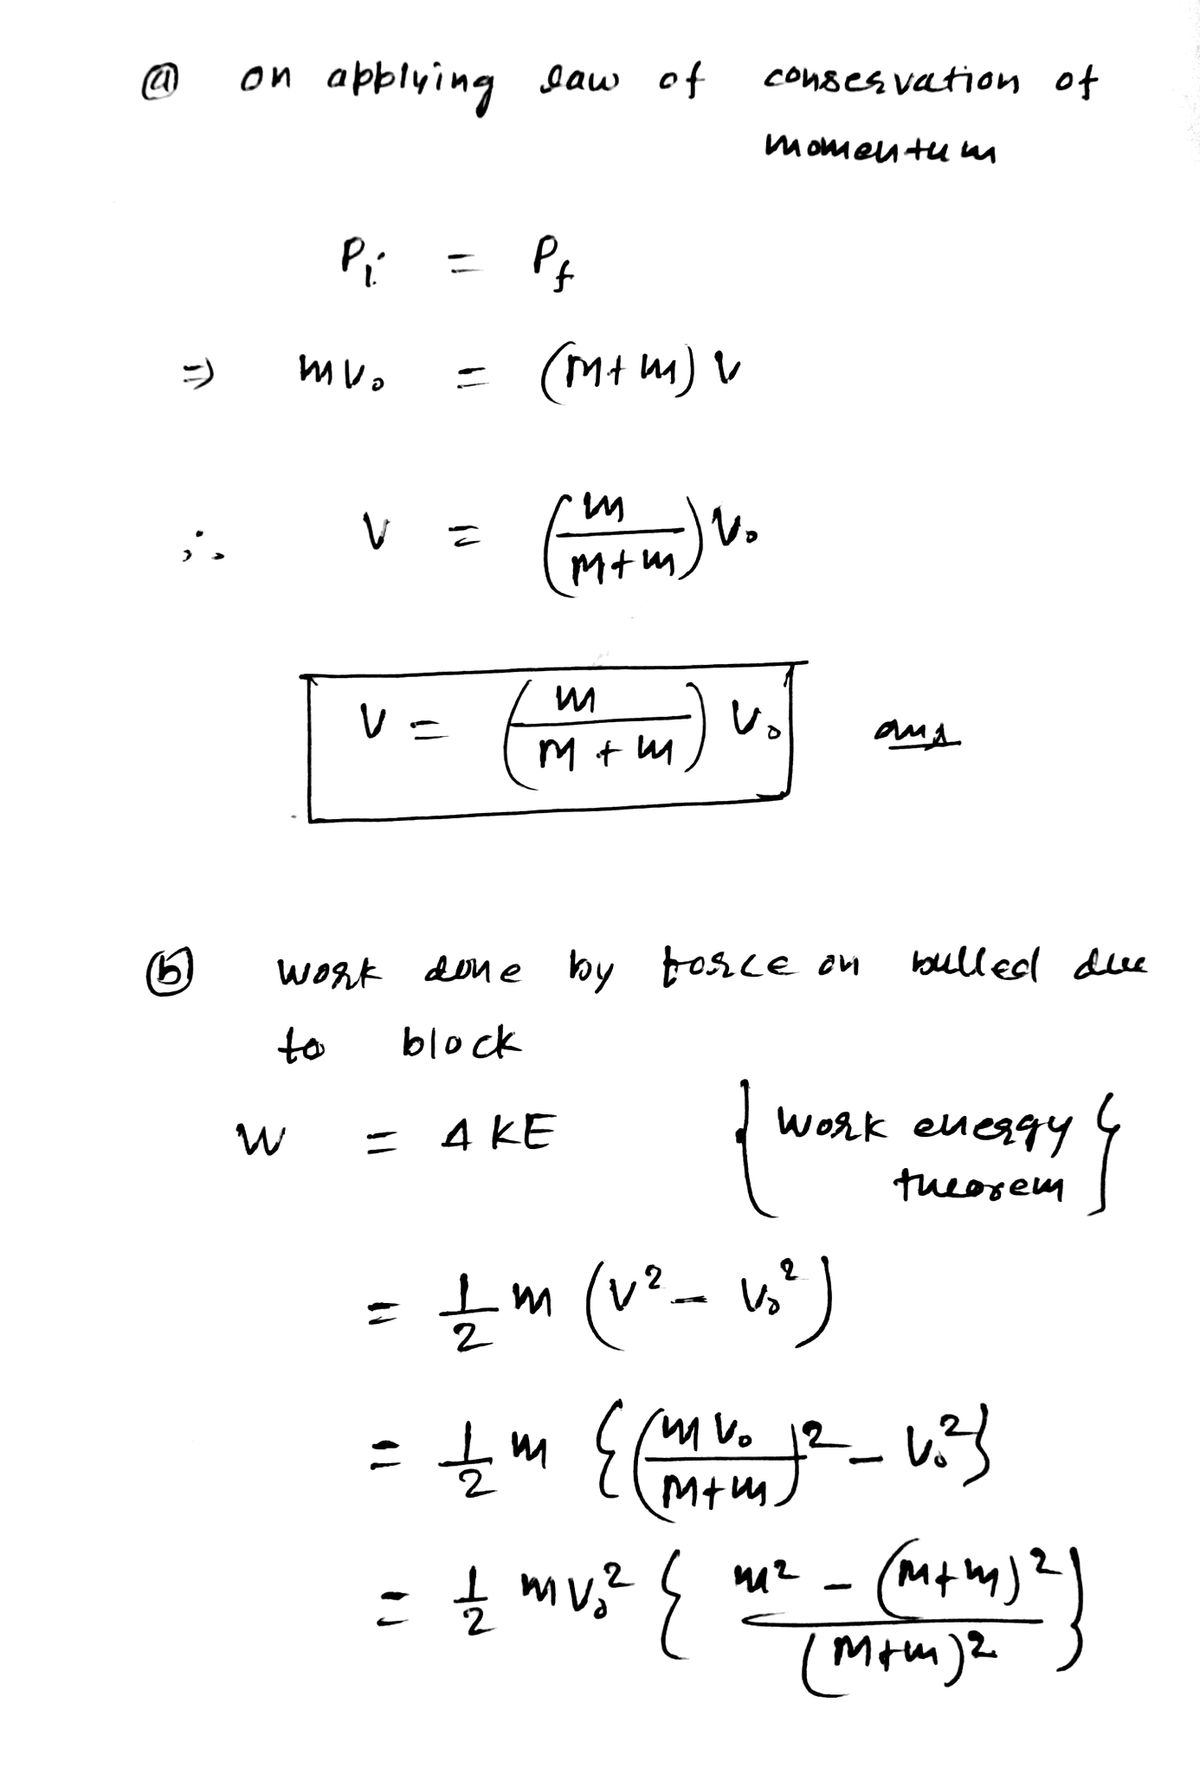 (a) on applying law of conservation of
momentum
Pi = Pf
⇒ mv₀ = (M+m) v
∴ v = (m/(M+m)) v₀
v = (m/(M+m)) v₀ ans
(b) work done by force on bulled due
to block
W = Δ KE { work energy
theorem }
= 1/2 m (v² - v₀²)
= 1/2 m {(mv₀/(M+m))² - v₀²}
= 1/2 mv₀² {(m² - (M+m)²)/(M+m)²}